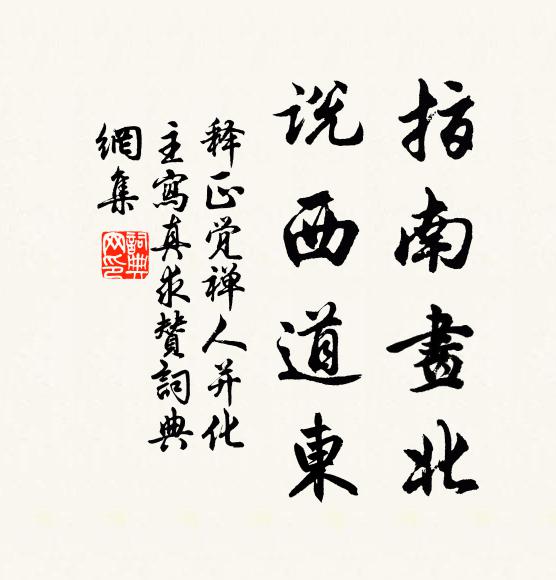 指南畫北
说西道東
释正觉禅人并化
主寫真求賛詞典
網集
詞典
网印